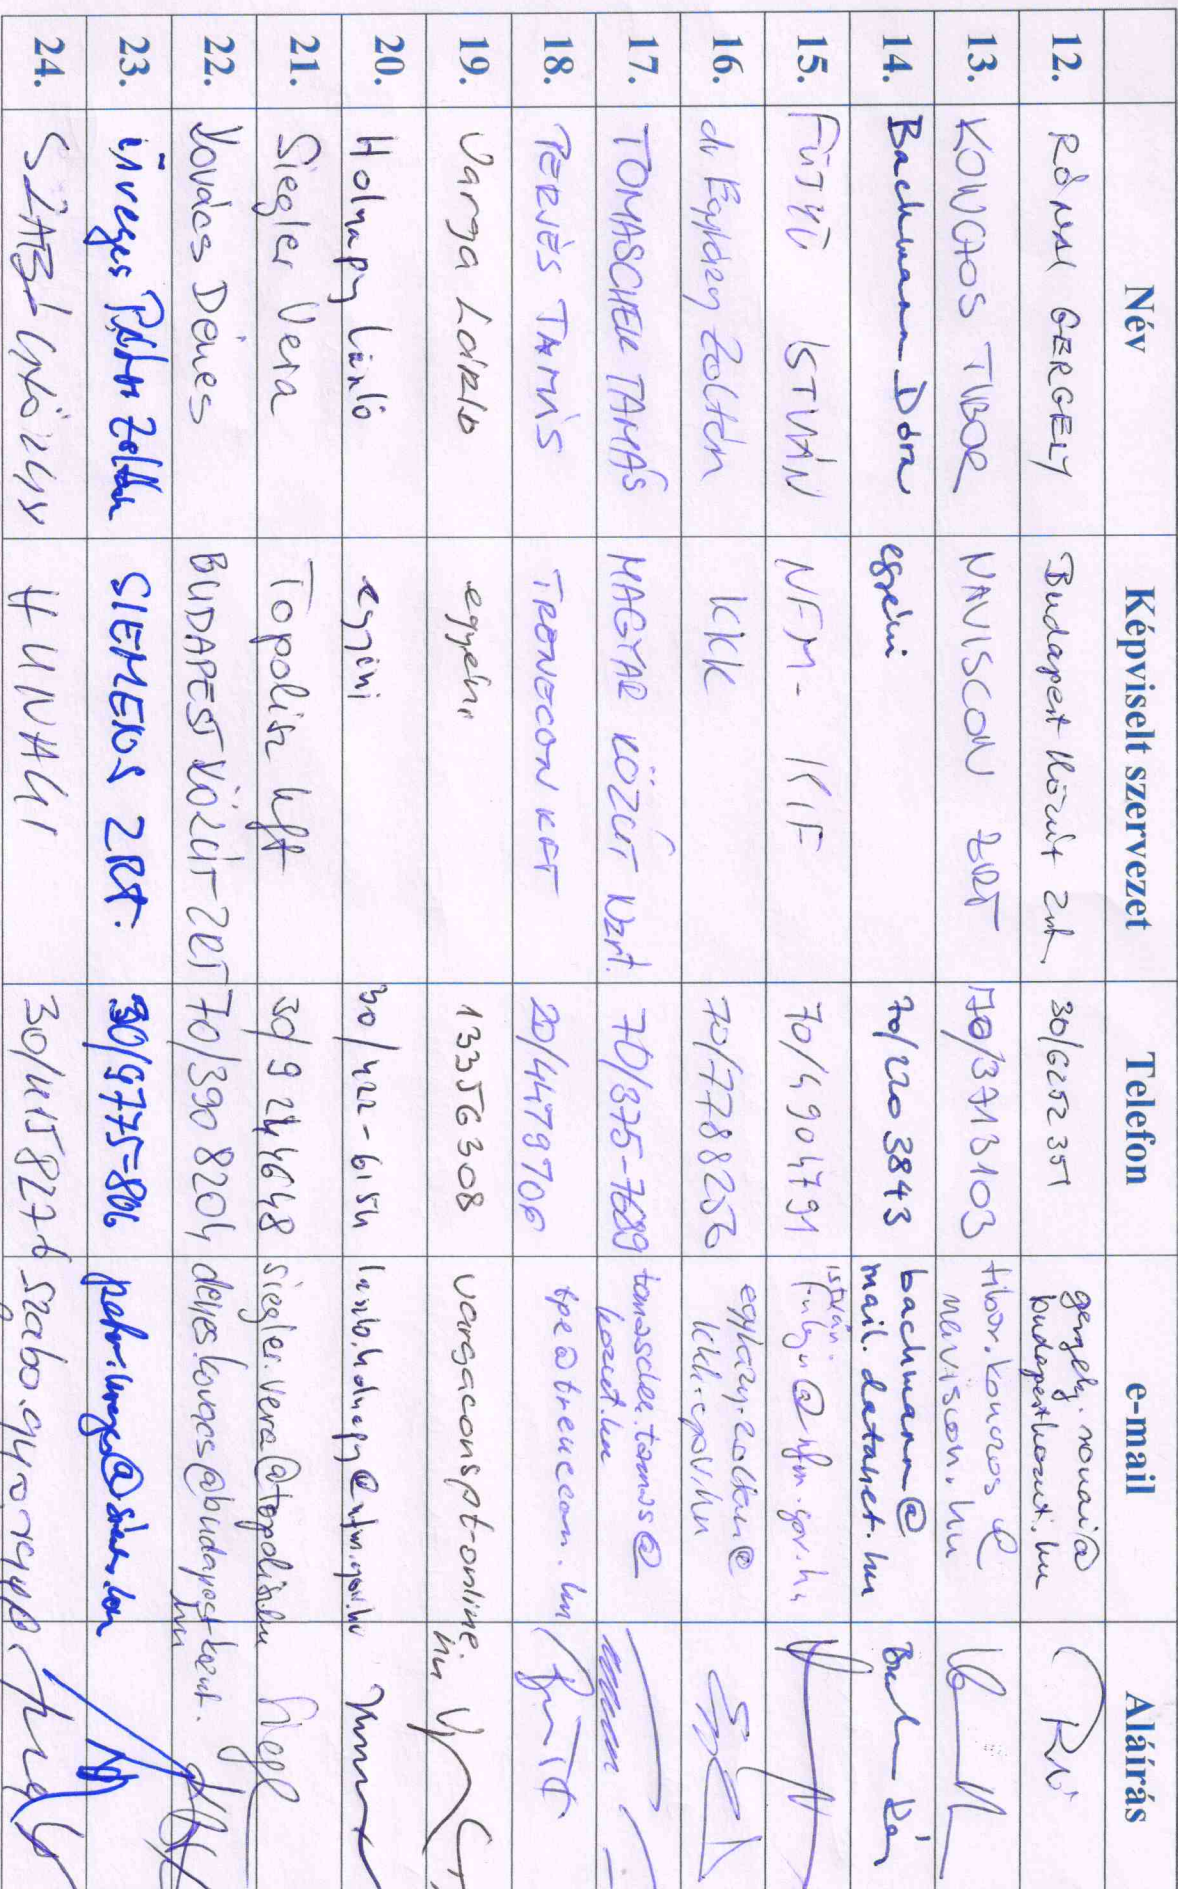 Név Képviselt szervezet Telefon e-mail Aláírás
12. RÓNAI GERGELY Budapest Közút Zrt. 30/6252 351 gergely.ronai@
budapestkozut.hu
13. KONCHOS TIBOR NAVISCON ZRT 70/3713103 tibor.konczos@
naviscon.hu
14. Bachmann Dóra egyéni 70/220 3843 bachmann@
mail.datanet.hu
15. FÜTYÜ ISTVÁN NFM - KIF 70/4904791 istván.
futyu@nfm.gov.hu
16. dr Egyházy Zoltán KKK 70/7788256 egyhazy.zoltan@
kkk.gov.hu
17. TOMASCHEK TAMÁS MAGYAR KÖZÚT Nzrt. 70/375-7689 tomaschek.tamas@
kozut.hu
18. PERJÉS TAMÁS TRENECON KFT 20/4479700 tpe@trenecon.hu
19. Varga László egyéni 13356308 vargacons@t-online.
hu
20. Holnapy László egyéni 30/422-6154 laszlo.holnapy@nfm.gov.hu
21. Siegler Vera Topolisz kft 30/9244648 siegler.vera@topolisz.hu
22. Kovács Dénes BUDAPEST KÖZÚT ZRT 70/390 8204 denes.kovacs@budapestkozut.
hu
23. Üveges Péter Zoltán SIEMENS ZRT. 30/9775-806
24. SZABÓ GYÖRGY HUNAGI 30/4158276